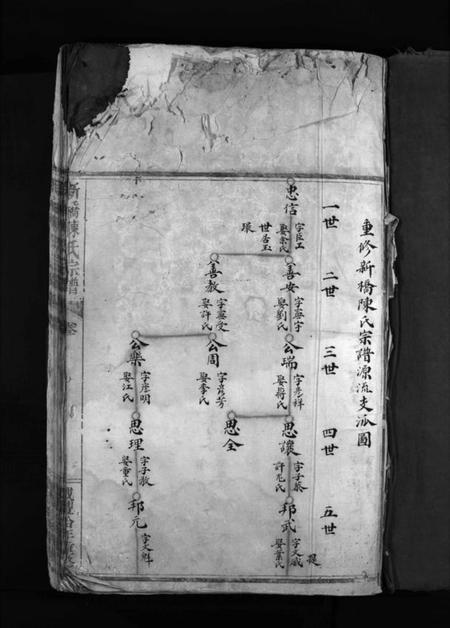 重修新橋陳氏宗譜源流支派圖
一世
二世
三世
四世
五世
忠信
娶余氏
世居玉
琅
善安
字庭宇
娶劉氏
善教
字庭受
娶許氏
公瑞
字彦祥
娶蔣氏
公周
字彦芳
娶李氏
公樂
字彦明
娶江氏
思讓
字子恭
許尤氏
思全
思理
字子敖
娶董氏
邦武
字文威
娶葉氏
邦元
字文魁
新橋陳氏宗譜